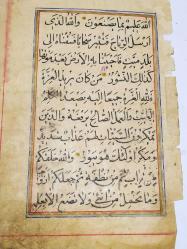 الله عليم بما يصنعون والله الذي
ارسل الرياح فتثير سحابا فسقناه الى
بلد ميت فاحيينا به الارض بعد موتها
كذلك النشور من كان يريد العزة
فلله العزة جميعا اليه يصعد الكلم
الطيب والعمل الصالح يرفعه والذين
يمكرون السيئات لهم عذاب شديد
ومكر اولئك هو يبور والله خلقكم
من تراب ثم من نطفة ثم جعلكم ازواجا
وما تحمل من انثى ولا تضع الا بعلمه